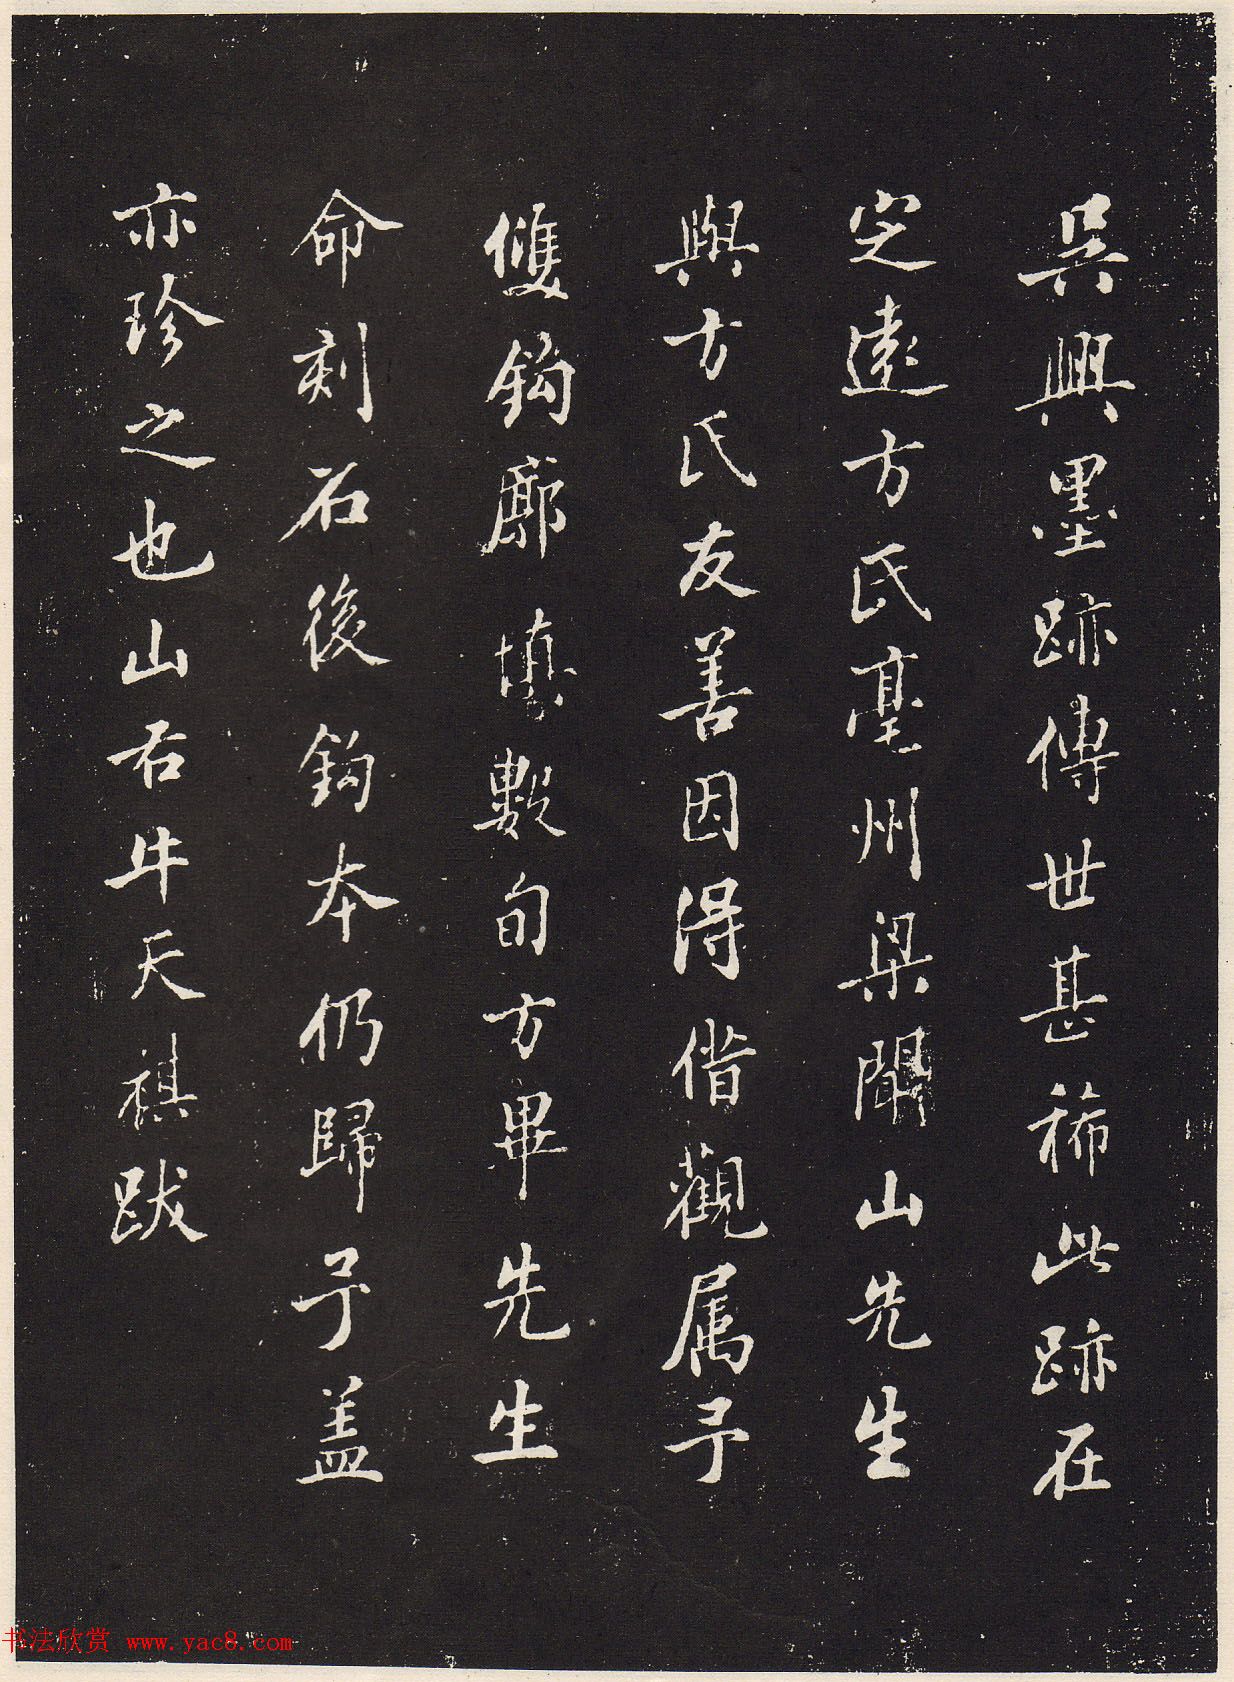 吳興墨跡傳世甚稀此跡在
定遠方氏亳州梁聞山先生
與方氏友善因得借觀属予
雙鈎廓填數旬方畢先生
命刻石後鈎本仍歸予盖
亦珍之也山右牛天祺跋
书法欣赏 www.yac8.com